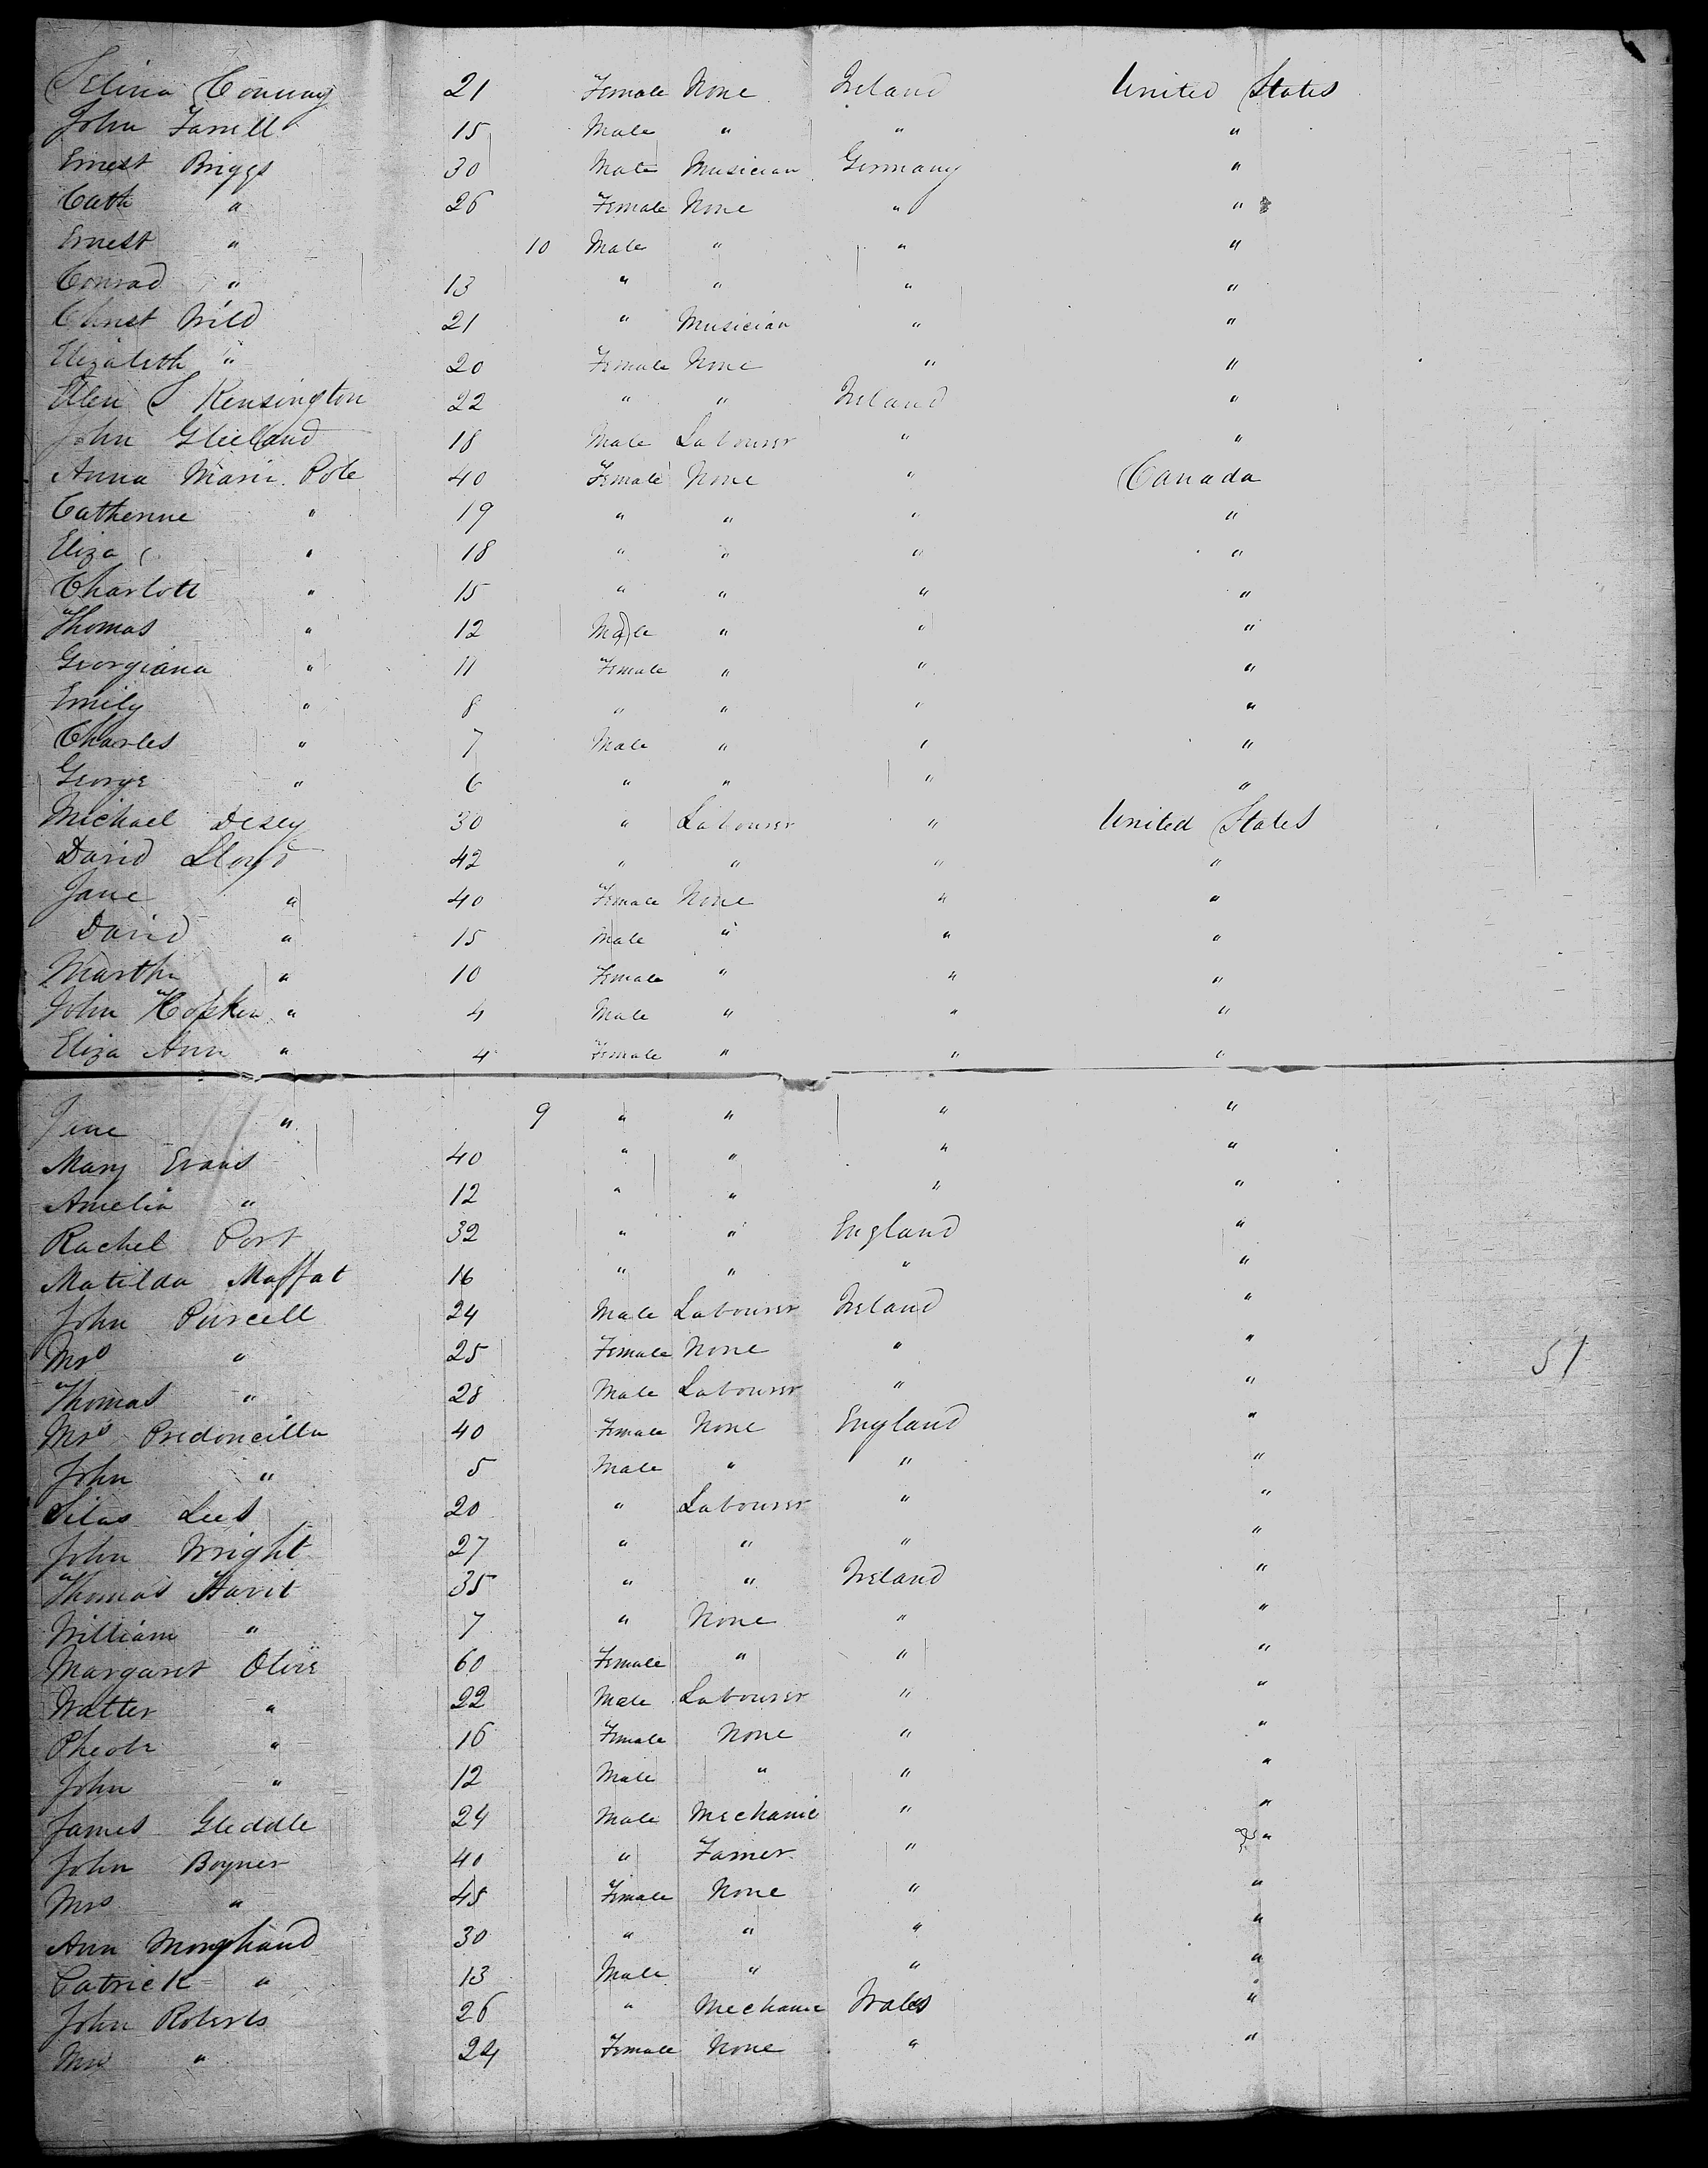 Selina Conway 21 Female None Ireland United States
John Farrell 15 Male " " "
Ernest Briggs 30 Male Musician Germany "
Cath " 26 Female None " "
Ernest " 10 Male " " "
Conrad " 13 " " " "
Christ Wild 21 " Musician " "
Elizabeth " 20 Female None " "
Ellen S Kensington 22 " " Ireland "
John 18 Male Labourer " "
Anna Marie Pole 40 Female None " Canada
Catherine " 19 " " " "
Eliza " 18 " " " "
Charlott " 15 " " " "
Thomas " 12 Male " " "
Georgiana " 11 Female " " "
Emily " 8 " " " "
Charles " 7 Male " " "
George " 6 " " " "
Michael Desey 30 " Labourer " United States
David Lloyd 42 " " " "
Jane " 40 Female None " "
David " 15 Male " " "
Martha " 10 Female " " "
John Hopkin " 4 Male " " "
Eliza Ann " 4 Female " " "
Jane " 9 " " " "
Mary Evans 40 " " " "
Amelia " 12 " " " "
Rachel Port 32 " " England "
Matilda Maffat 16 " " " "
John Purcell 24 Male Labourer Ireland "
Mrs " 25 Female None " "
Thomas " 28 Male Labourer " "
Mrs 40 Female None England "
John " 5 Male " " "
Silas Lees 20 " Labourer " "
John Wright 27 " " " "
Thomas 35 " " Ireland "
William " 7 " None " "
Margaret Olive 60 Female " " "
Walter " 22 Male Labourer " "
Pheobe " 16 Female None " "
John " 12 Male " " "
James Gleddle 24 Male Mechanic " "
John Boyner 40 " Famer " "
Mrs " 45 Female None " "
Ann 30 " " " "
Patrick " 13 Male " " "
John Roberts 26 " Mechanic Wales "
Mrs " 24 Female None " "
51